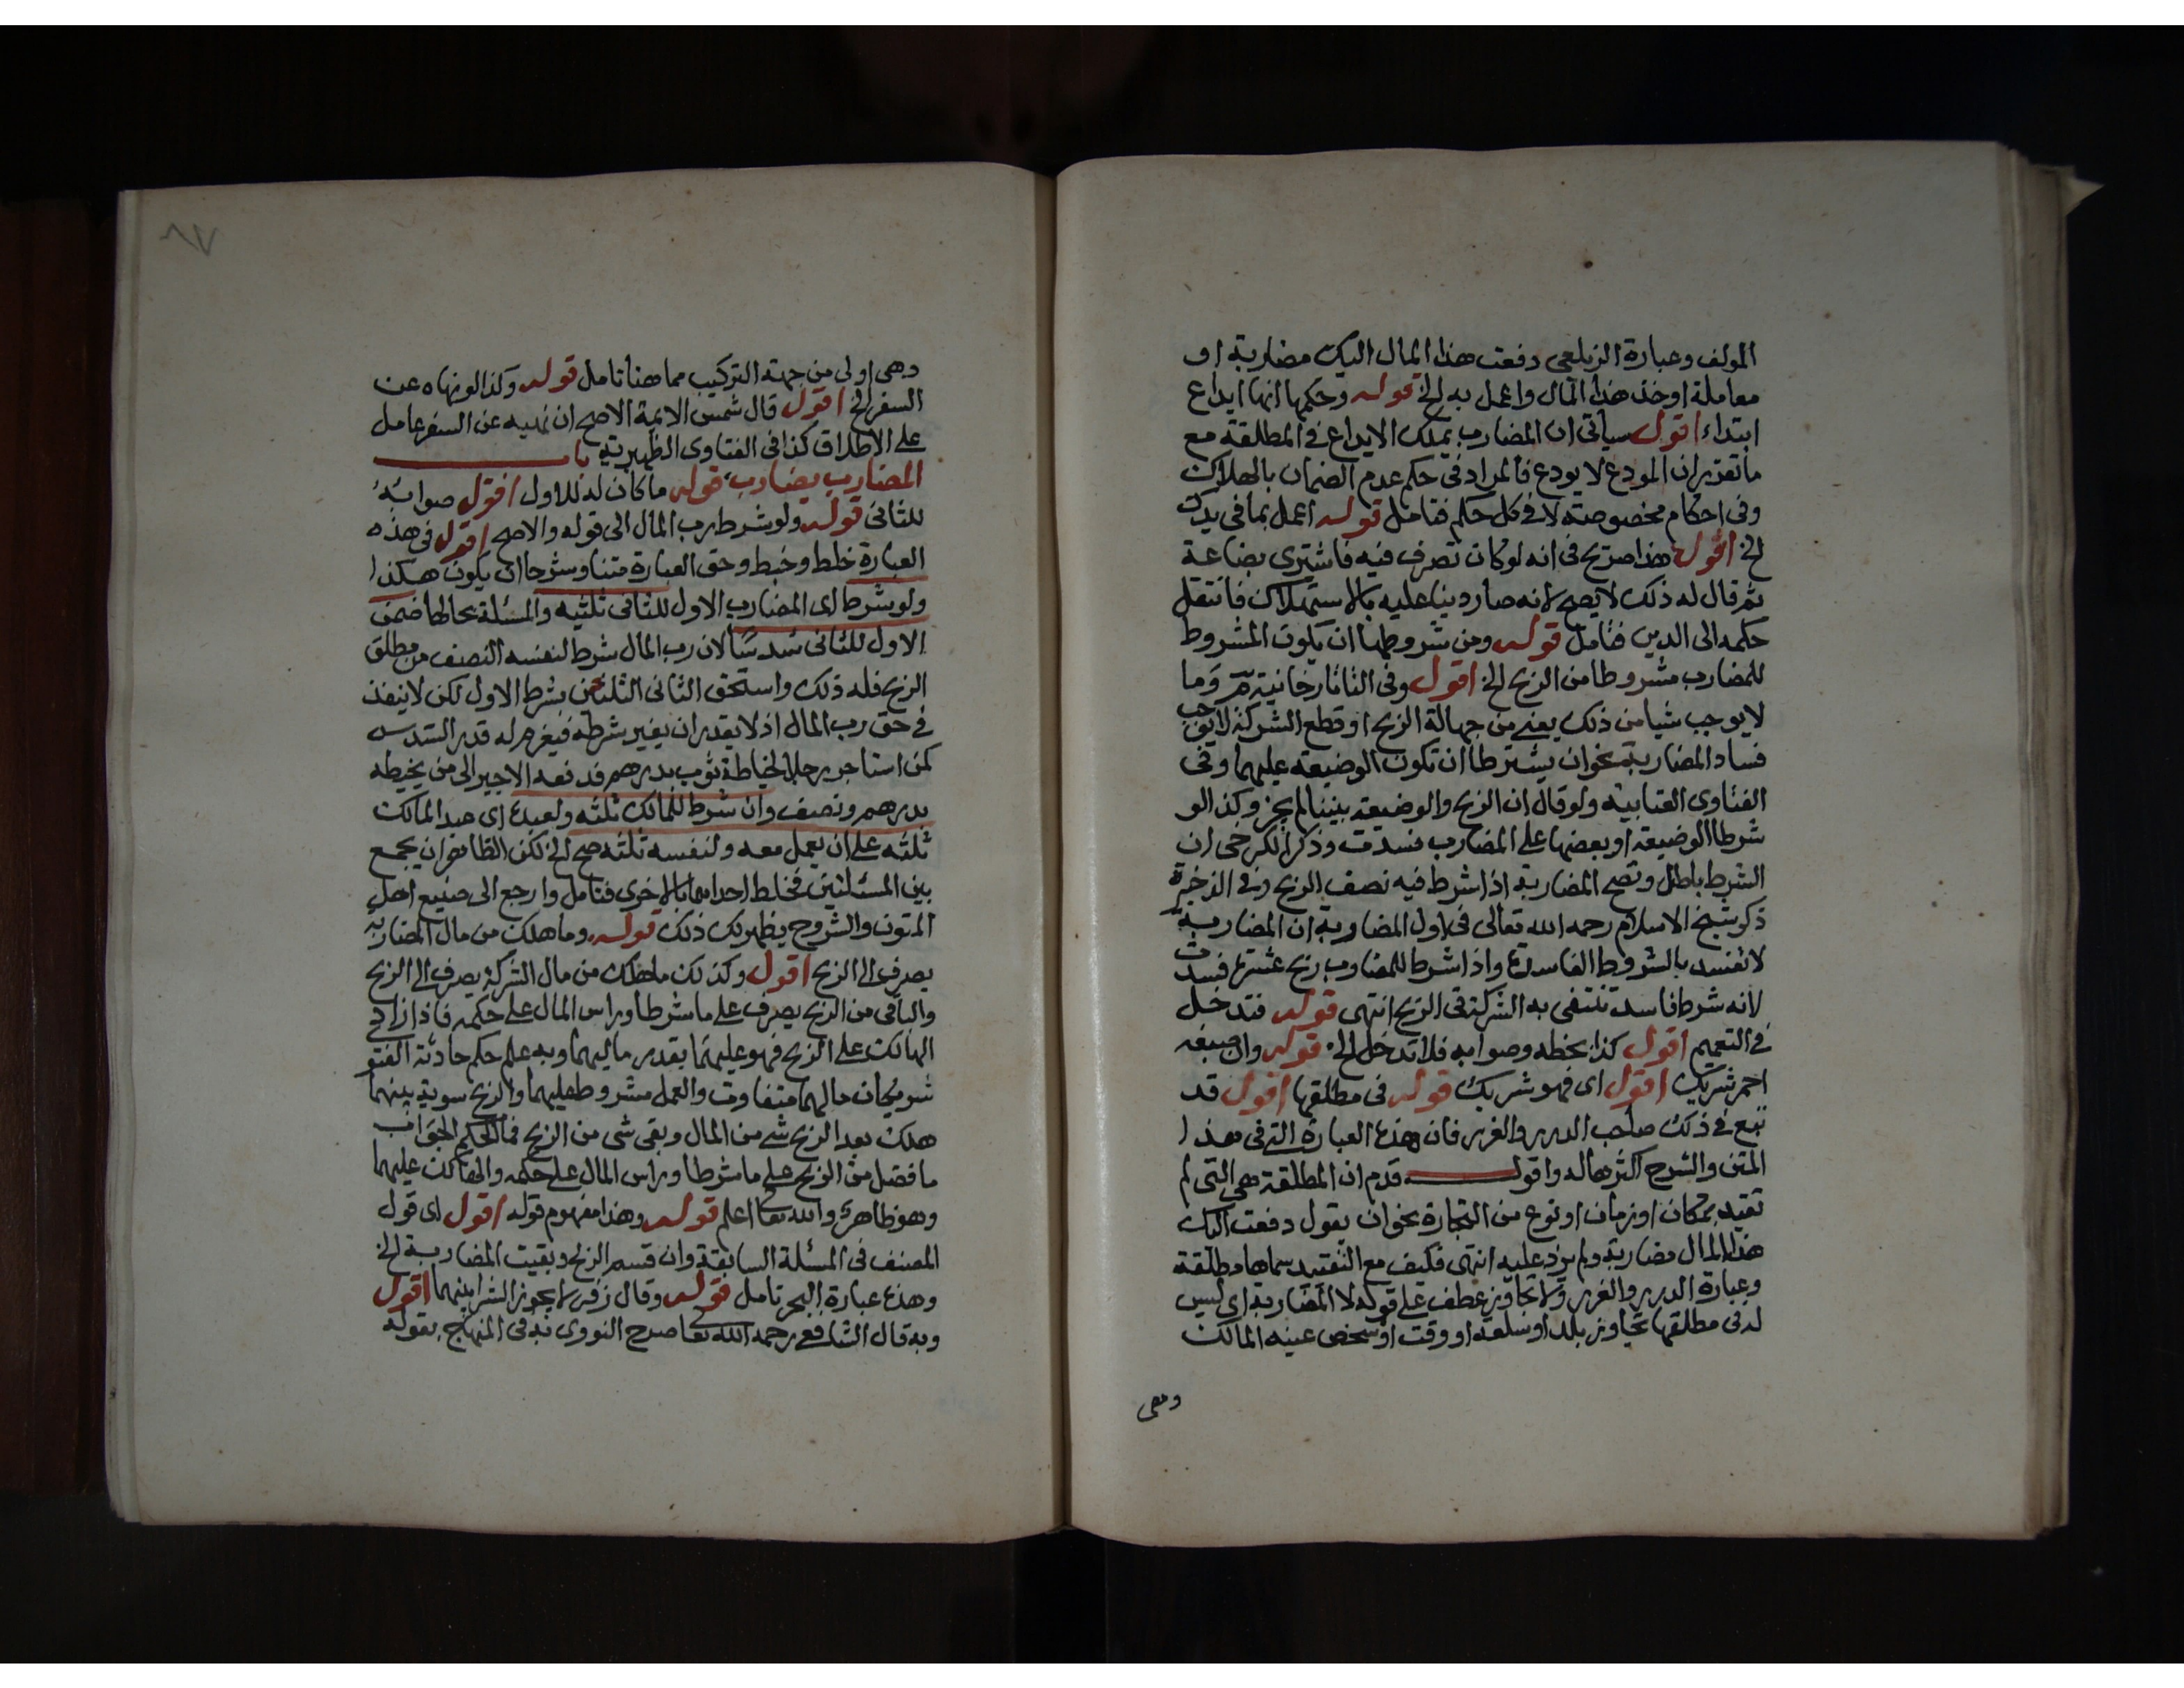 المولف وعبارة الزيلعي دفعت هذا المال اليك مضاربة او
معاملة او خذ هذا المال واعمل به الخ قوله وحكمها انها ايداع
ابتداء اقول سياتى ان المضارب يملك الايداع في المطلقة مع
ما تقرر ان المودع لا يودع فالمراد في حكم عدم الضمان بالهلاك
وفى احكام مخصوصته لا في كل حكم فتامل قوله اعمل بما في يدك
الخ اقول هذا صريح فى انه لو كان تصرف فيه فاشترى بضاعة
ثم قال له ذلك لا يصح لانه صار دينا عليه بالاستهلاك فانتقل
حكمه الى الدين فتامل قوله ومن شروطها ان يكون المشروط
للمضارب مشروطا من الربح الخ اقول وفى التاتارخانية م وما
لا يوجب شيا من ذلك يعنى من جهالة الربح او قطع الشركة لا يوجب
فساد المضاربة نحو ان يشترطا ان تكون الوضيعة عليهما وفى
الفتاوى العتابية ولو قال ان الربح والوضيعة بيننا لم يجز وكذا لو
شرطا الوضيعة او بعضها على المضارب فسدت وذكر الكرخى ان
الشرط باطل وتصح المضاربة اذا شرط فيه نصف الربح وفي الذخيرة
ذكر شيخ الاسلام رحمه الله تعالى فى اول المضاربة ان المضاربة
لا تفسد بالشروط الفاسدة واذا شرط للمضارب ربح عشرة فسدت
لانه شرط فاسد تنتفى به الشركة فى الربح انتهى قوله فتدخل
في التعميم اقول كذا بخطه وصوابه فلا تدخل الخ قوله وان صبغه
احمر شريك اقول اى فهو شريك قوله فى مطلقها اقول قد
تبع في ذلك صاحب الدرر والغرر فان هذه العبارة التي فى هذا
المتن والشرح اكثرها له واقول قدم ان المطلقة هي التى لم
تقيد بمكان او زمان او نوع من التجارة نحو ان يقول دفعت اليك
هذا المال مضاربة ولم يزد عليه انتهى فكيف مع التقييد سماها مطلقة
وعبارة الدرر والغرر ولا تجاوز عطف على قوله لا المضاربة اى ليس
له فى مطلقها تجاوز بلد او سلعة او وقت او شخص عينه المالك
وهى
٨٧
وهى اولى من جهة التركيب مما هنا تامل قوله وكذا لو نهاه عن
السفر الخ اقول قال شمس الايمة الاصح ان نهيه عن السفر عامل
على الاطلاق كذا فى الفتاوى الظهيرية باب
المضارب يضارب قوله ما كان له للاول اقول صوابه
للثانى قوله ولو شرط رب المال الى قوله والاصح اقول فى هذه
العبارة خلط وخبط وحق العبارة متنا وشرحا ان يكون هكذا
ولو شرط اى المضارب الاول للثانى ثلثيه والمسئلة بحالها ضمن
الاول للثانى سدسا لان رب المال شرط لنفسه النصف من مطلق
الربح فله ذلك واستحق الثانى الثلثين بشرط الاول لكن لا ينفذ
في حق رب المال اذ لا يقدر ان يغير شرطه فيغرم له قدر السدس
كمن استاجر رجلا لخياطة ثوب بدرهم فدفعه الاجير الى من يخيطه
بدرهم ونصف وان شرط للمالك ثلثه ولعبده اى عبد المالك
ثلثه على ان يعمل معه ولنفسه ثلثه صح الخ لكن الظاهر ان يجمع
بين المسئلتين فخلط احداهما بالاخرى فتامل وارجع الى صنيع اهل
المتون والشروح يظهر لك ذلك قوله وما هلك من مال المضاربة
يصرف الى الربح اقول وكذلك ما هلك من مال الشركة يصرف الى الربح
والباقى من الربح يصرف على ما شرطا وراس المال على حكمه فاذا زاد
الهالك على الربح فهو عليهما بقدر ماليهما وبه علم حكم حادثة الفتوى
شريكان مالهما متفاوت والعمل مشروط عليهما والربح سوية بينهما
هلك بعد الربح شي من المال وبقى شى من الربح فما الحكم الجواب
ما فضل من الربح على ما شرطا وراس المال على حكمه والهالك عليهما
وهو ظاهر والله تعا اعلم قوله وهذا مفهوم قوله اقول اى قول
المصنف فى المسئلة السابقة وان قسم الربح وبقيت المضاربة الخ
وهذه عبارة البحر تامل قوله وقال زفر لا يجوز الشرا بينهما اقول
وبه قال الشافعي رحمه الله تعا صرح النووى به فى المنهاج بقوله